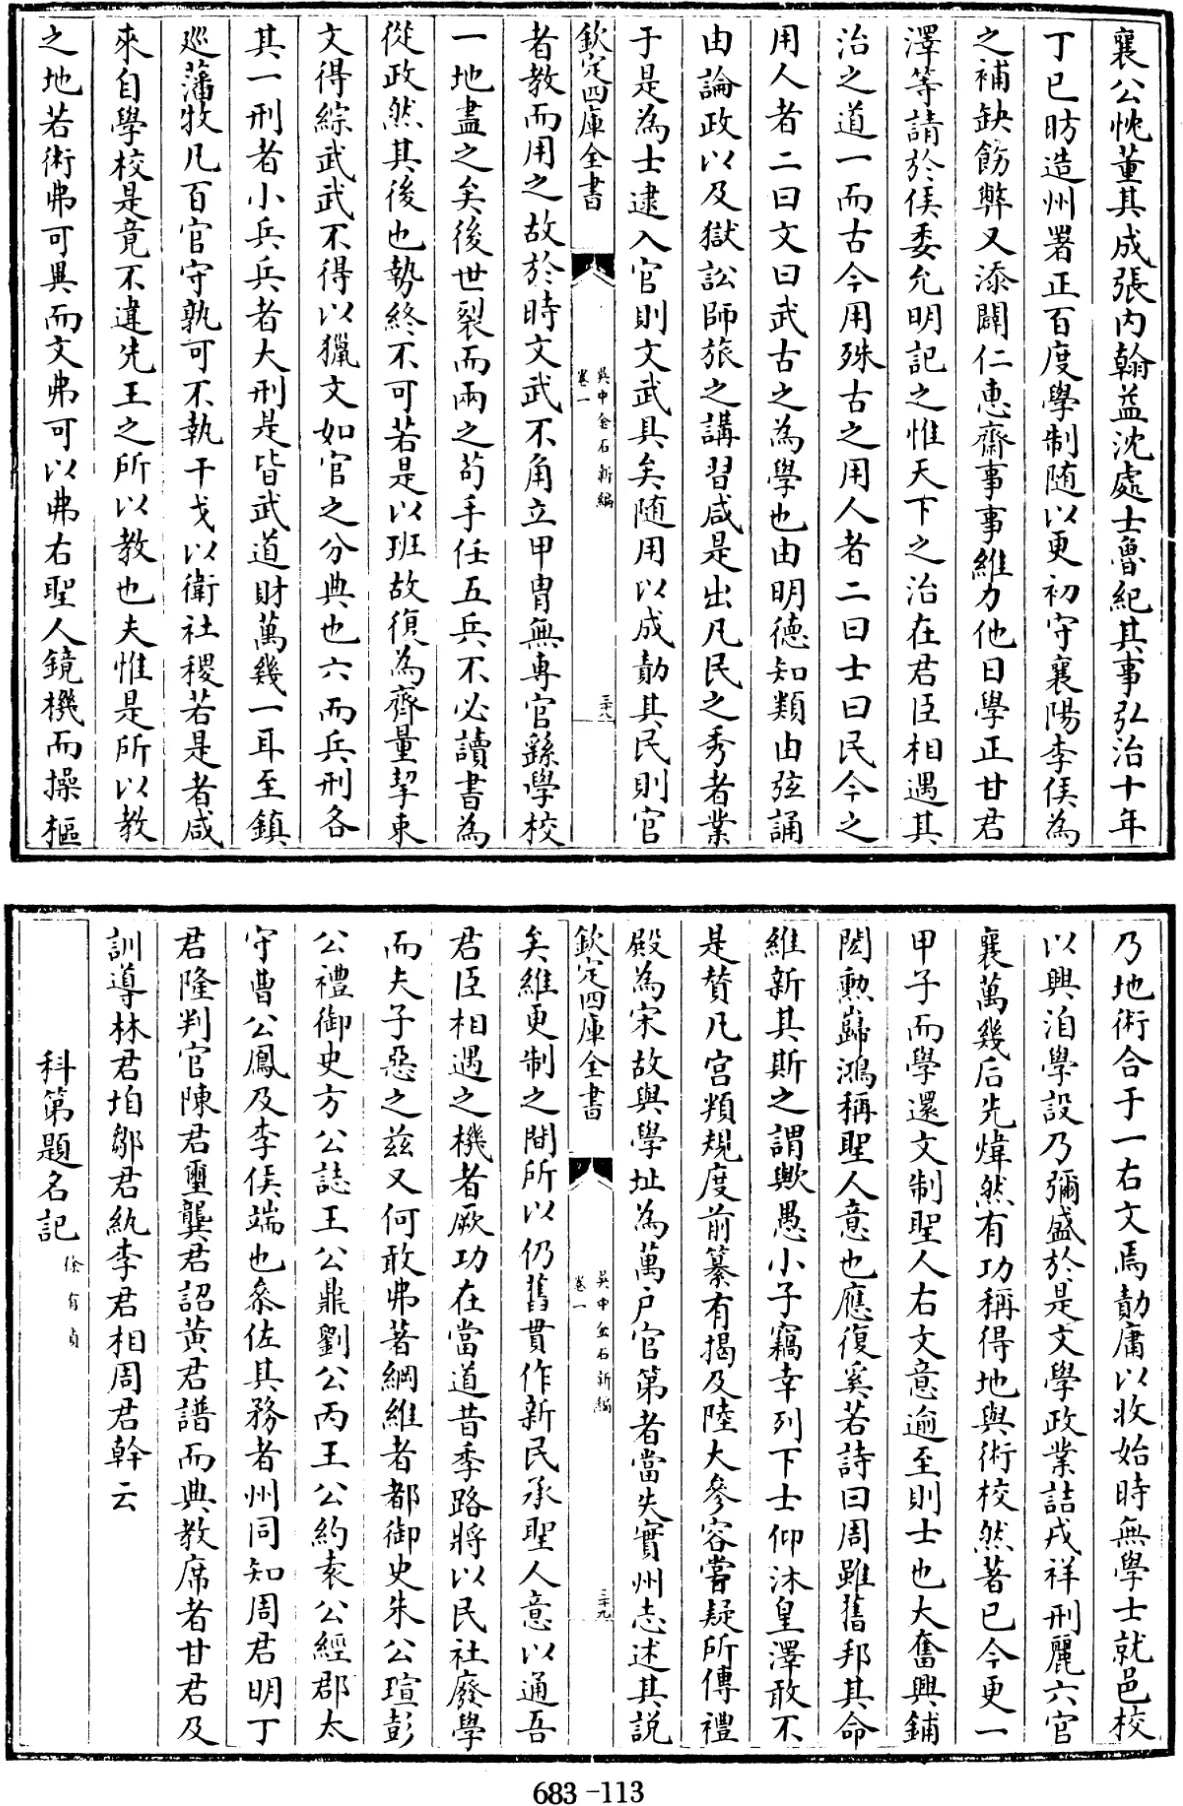 襄公忱董其成張内翰益沈處士魯紀其事弘治十年
丁巳昉造州署正百度學制随以更初守襄陽李侯為
之補缺飭弊又添闢仁恵齋事事維力他日學正甘君
澤等請於侯委允明記之惟天下之治在君臣相遇其
治之道一而古今用殊古之用人者二曰士曰民今之
用人者二曰文曰武古之為學也由明徳知類由弦誦
由論政以及獄訟師旅之講習咸是出凡民之秀者業
于是為士逮入官則文武具矣随用以成勣其民則官
欽定四庫全書
吳中金石新編
卷一
三十八
者教而用之故於時文武不角立甲胄無專官繇學校
一地盡之矣後世裂而兩之苟手任五兵不必讀書為
從政然其後也勢終不可若是以班故復為齊量挈柬
文得綜武武不得以獵文如官之分典也六而兵刑各
其一刑者小兵兵者大刑是皆武道財萬幾一耳至鎮
廵藩牧凡百官守孰可不執干戈以衛社稷若是者咸
來自學校是竟不違先王之所以教也夫惟是所以教
之地若術弗可異而文弗可以弗右聖人鏡機而操樞
乃地術合于一右文焉勣庸以收始時無學士就邑校
以興洎學設乃彌盛於是文學政業詰戎祥刑麗六官
襄萬幾后先煒然有功稱得地與術校然著已今更一
甲子而學還文制聖人右文意逾至則士也大奮興鋪
閎勲巋鴻稱聖人意也應復奚若詩曰周雖舊邦其命
維新其斯之謂歟愚小子竊幸列下士仰沐皇澤敢不
是賛凡宫頖規度前纂有揭及陸大參容嘗疑所傳禮
殿為宋故與學址為萬户官第者當失實州志述其説
欽定四庫全書
吳中金石新編
卷一
三十九
矣維更制之間所以仍舊貫作新民承聖人意以通吾
君臣相遇之機者厥功在當道昔季路將以民社廢學
而夫子惡之兹又何敢弗著綱維者都御史朱公瑄彭
公禮御史方公誌王公鼎劉公丙王公約袁公經郡太
守曹公鳳及李侯端也叅佐其務者州同知周君明丁
君隆判官陳君璽龔君詔黄君譜而典教席者甘君及
訓導林君垍鄒君紈李君相周君幹云
科第題名記
徐有貞
683-113